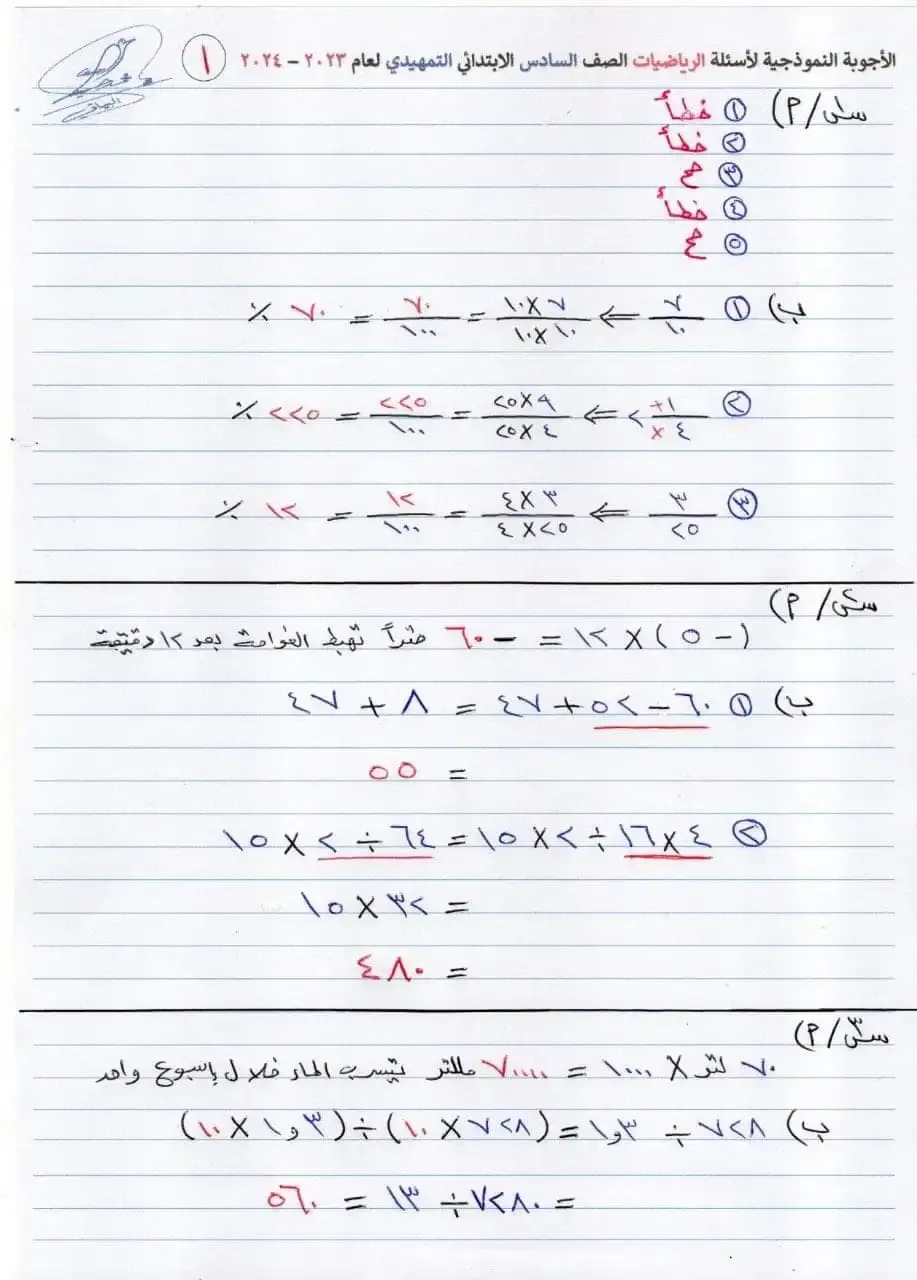 الأجوبة النموذجية لأسئلة الرياضيات الصف السادس الابتدائي التمهيدي لعام ٢٠٢٣ - ٢٠٢٤ ١
س١/ أ) ① خطأ
② خطأ
③ صح
④ خطأ
⑤ صح
ب) ① ٧/١٠ ⇐ ٧ × ١٠ / ١٠ × ١٠ = ٧٠/١٠٠ = ٧٠ ٪
② ٢ ١/٤ ⇐ ٩ × ٢٥ / ٤ × ٢٥ = ٢٢٥/١٠٠ = ٢٢٥ ٪
③ ٣/٢٥ ⇐ ٣ × ٤ / ٢٥ × ٤ = ١٢/١٠٠ = ١٢ ٪
س٢/ أ)
(- ٥) × ١٢ = - ٦٠ متراً تهبط الغواصة بعد ١٢ دقيقة
ب) ① ٦٠ - ٥٢ + ٤٧ = ٨ + ٤٧
= ٥٥
② ٤ × ١٦ ÷ ٢ × ١٥ = ٦٤ ÷ ٢ × ١٥
= ٣٢ × ١٥
= ٤٨٠
س٣/ أ)
٧٠ لتر × ١٠٠٠ = ٧٠٠٠٠ مللتر يتسرب الماء خلال إسبوع واحد
ب) ٧٢٨ ÷ ١و٣ = (٧٢٨ × ١٠) ÷ (١و٣ × ١٠)
= ٧٢٨٠ ÷ ١٣ = ٥٦٠